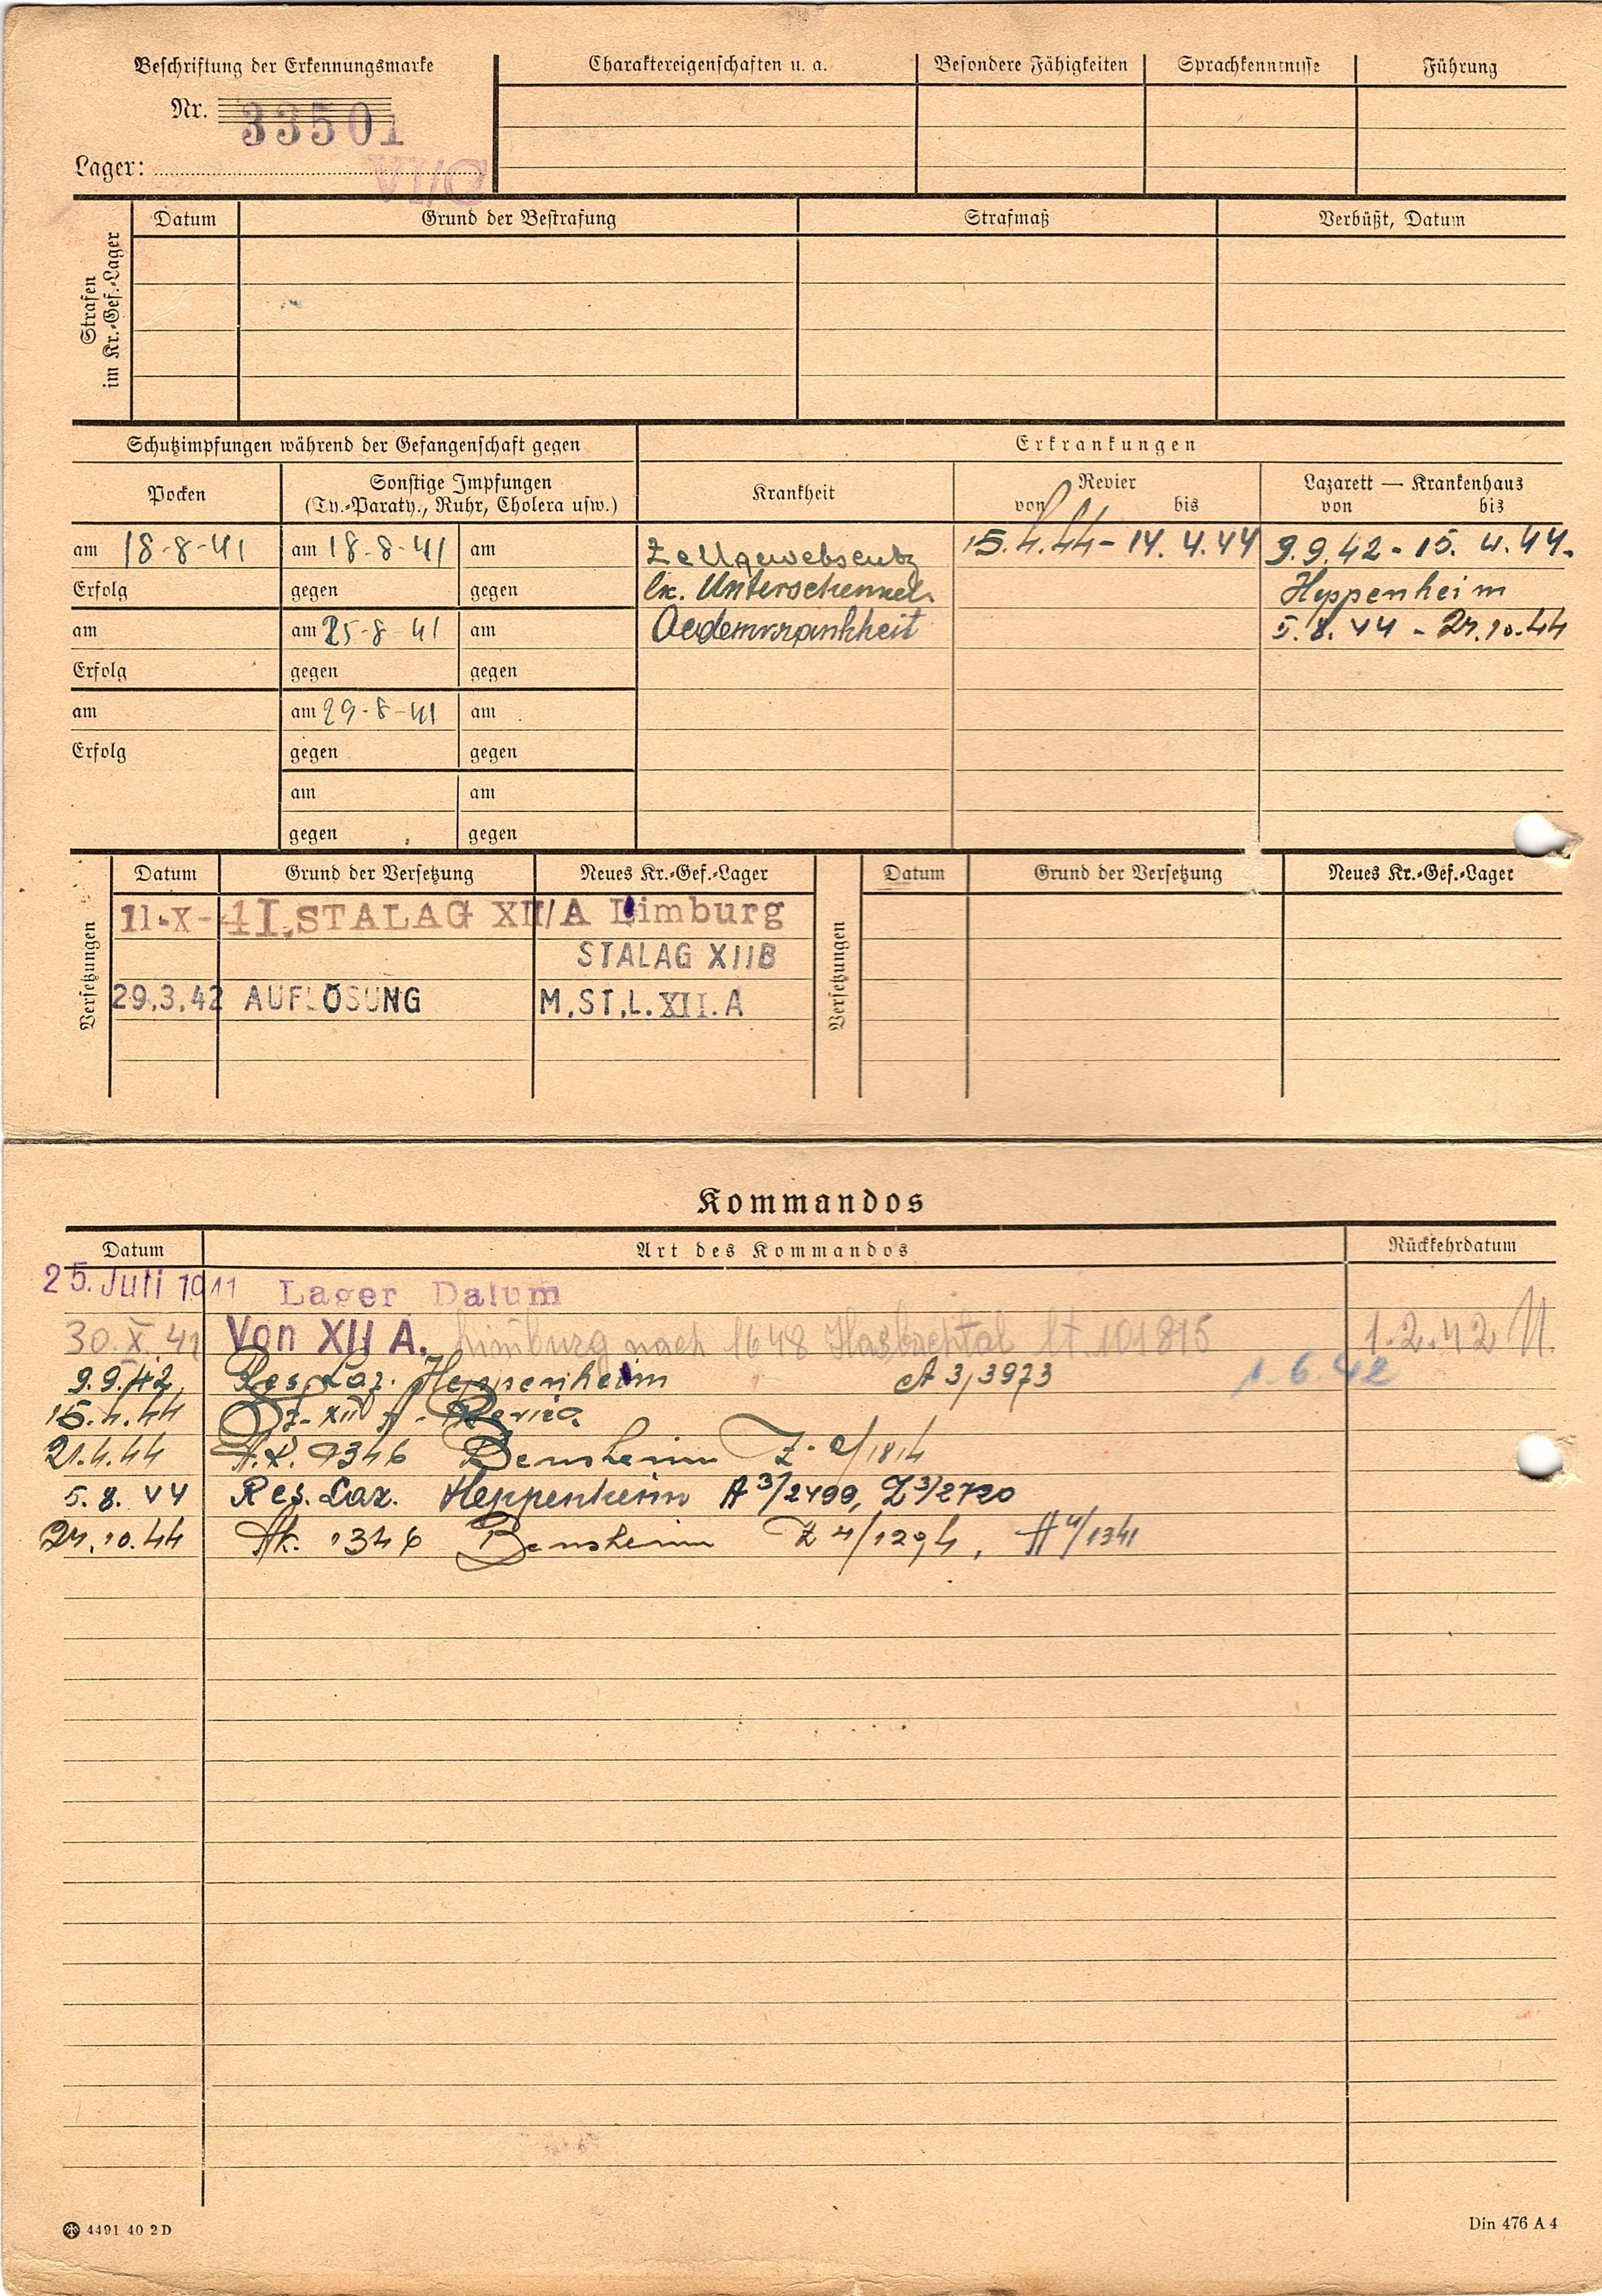 Beschriftung der Erkennungsmarke
Nr. 33501
Lager: VI/C
Charaktereigenschaften u. a. Besondere Fähigkeiten Sprachkenntnisse Führung
Strafen im Kr.-Gef.-Lager
Datum Grund der Bestrafung Strafmaß Verbüßt, Datum
Schutzimpfungen während der Gefangenschaft gegen
Erkrankungen
Pocken Sonstige Impfungen (Ty.-Paraty., Ruhr, Cholera usw.)
Krankheit Revier von bis Lazarett — Krankenhaus von bis
am 18-8-41 am 18-8-41 am
Zellgewebsentz 15.4.44 - 14.4.44 9.9.42 - 15. 4.44.
Erfolg gegen gegen
lk. Unterschenkel Heppenheim
am am 25-8-41 am
Oedemkrankheit 5.8.44 - 24.10.44
Erfolg gegen gegen
am am 29-8-41 am
Erfolg gegen gegen
am am
gegen gegen
Versetzungen
Datum Grund der Versetzung Neues Kr.-Gef.-Lager
11.X-41. STALAG XII/A Limburg
STALAG XIIB
29.3.42 AUFLÖSUNG M.ST.L.XII.A
Versetzungen
Datum Grund der Versetzung Neues Kr.-Gef.-Lager
Kommandos
Datum Art des Kommandos Rückkehrdatum
25. Juli 1941 Lager Datum
30.X.41 Von XII A. Limburg nach 1648 lt. 101815 1.2.42
9.9.42 Res. Laz. Heppenheim A 3/3973 1.6.42
15.4.44 XII A - Revier
21.4.44 A.K. 1346 Bensheim
5.8.44 Res. Laz. Heppenheim A 3/2499, Z 3/2720
24.10.44 Ak. 1346 Bensheim Z 4/1294, A 4/1341
4491 40 2 D
Din 476 A 4